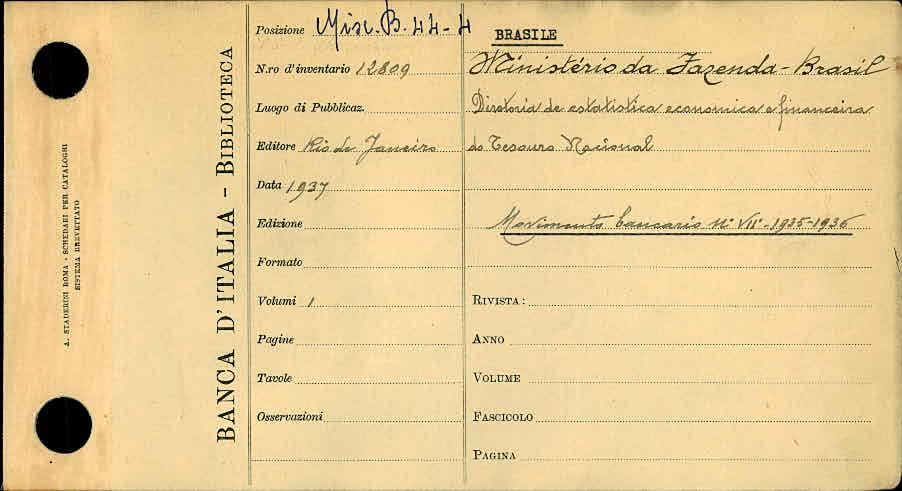 A. STADERINI ROMA - SCHEDARI PER CATALOGHI
SISTEMA BREVETTATO
BANCA D'ITALIA - BIBLIOTECA
Posizione Misc. B. 44-4
N.ro d'inventario 12809
Luogo di Pubblicaz.
Editore Rio de Janeiro
Data 1937
Edizione
Formato
Volumi 1
Pagine
Tavole
Osservazioni
BRASILE
Ministério da Fazenda - Brasil
Diretoria de estatistica economica e financeira
do Tesouro Nacional
Movimento bancario n° VII° - 1935-1936
RIVISTA:
ANNO
VOLUME
FASCICOLO
PAGINA